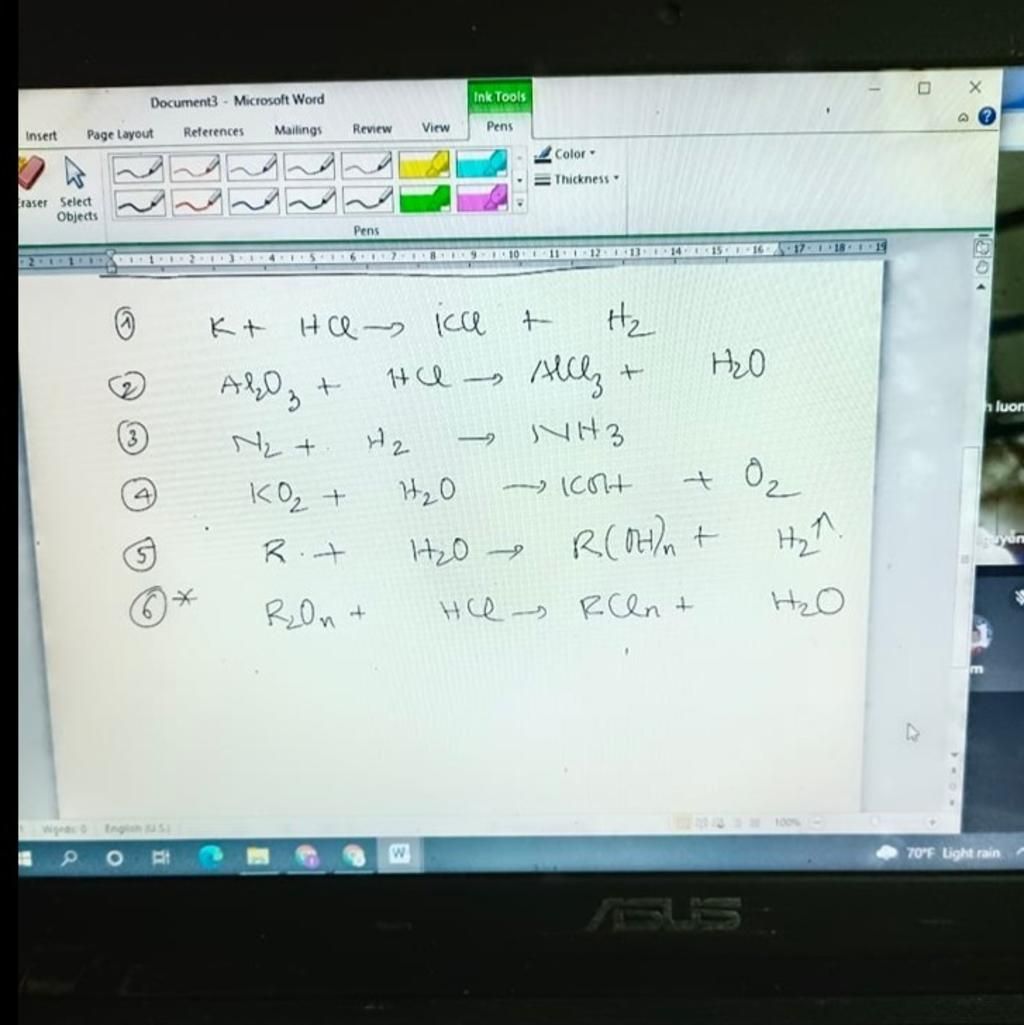 Document3 - Microsoft Word
Ink Tools
Insert Page Layout References Mailings Review View Pens
Eraser Select Objects
Color
Thickness
Pens
2 1 1 2 3 4 5 6 7 8 9 10 11 12 13 14 15 16 17 18 19
① K + HCl → KCl + H2
② Al2O3 + HCl → AlCl3 + H2O
③ N2 + H2 → NH3
④ KO2 + H2O → KOH + O2
⑤ R + H2O → R(OH)n + H2↑
⑥* R2On + HCl → RCln + H2O
Words: 0 English (U.S.) 100%
W
70°F Light rain
ASUS